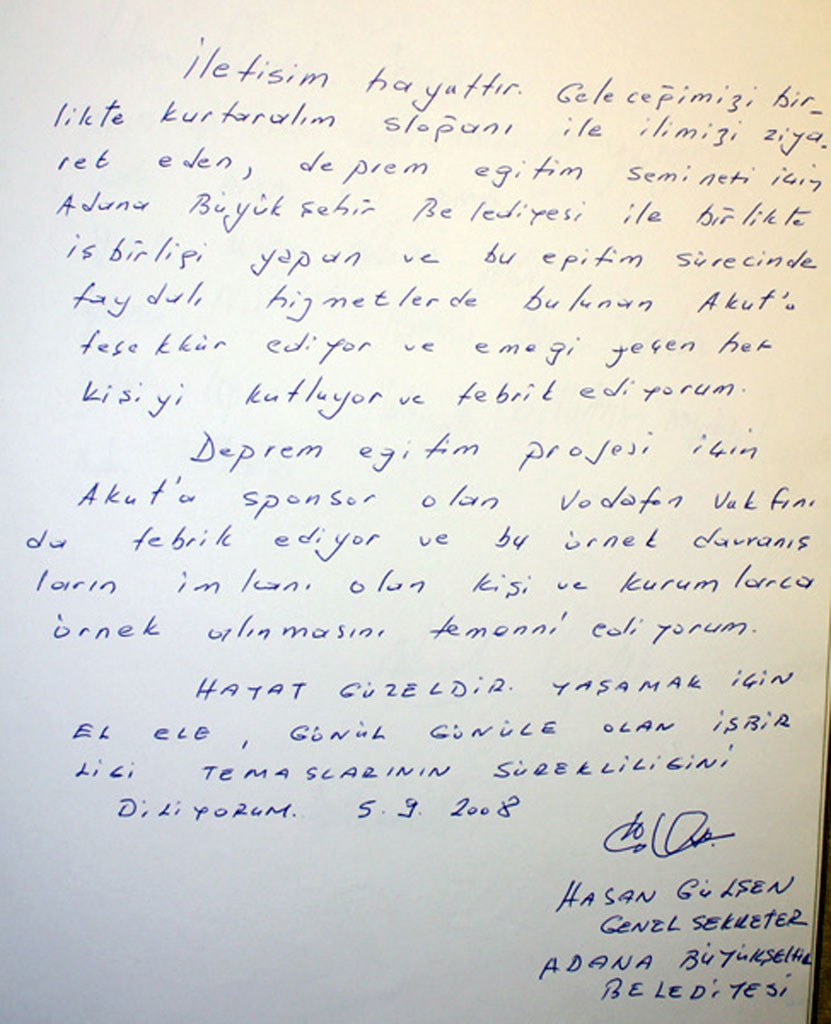 İletişim hayattır. Geleceğimizi bir_
likte kurtaralım sloğanı ile ilimizi ziya.
ret eden, deprem egitim semineti için
Adana Büyük şehir Belediyesi ile birlikte
iş birliği yapan ve bu eğitim sürecinde
faydalı hizmetlerde bulunan Akut'a
teşekkür ediyor ve emegi geçen her
kişiyi kutluyor ve tebrik ediyorum.
Deprem egitim projesi için
Akut'a sponsor olan Vodafon Vakfını
da tebrik ediyor ve bu örnek davranış
ların imkanı olan kişi ve kurumlarca
örnek alınmasını temenni ediyorum.
HAYAT GÜZELDİR. YAŞAMAK İÇİN
EL ELE, GÖNÜL GÖNÜLE OLAN İŞBİR
LİGİ TEMASLARININ SÜREKLİLİGİNİ
DİLİYORUM. 5.9.2008
HASAN GÜLŞEN
GENEL SEKRETER
ADANA BÜYÜKŞEHİR
BELEDİYESİ